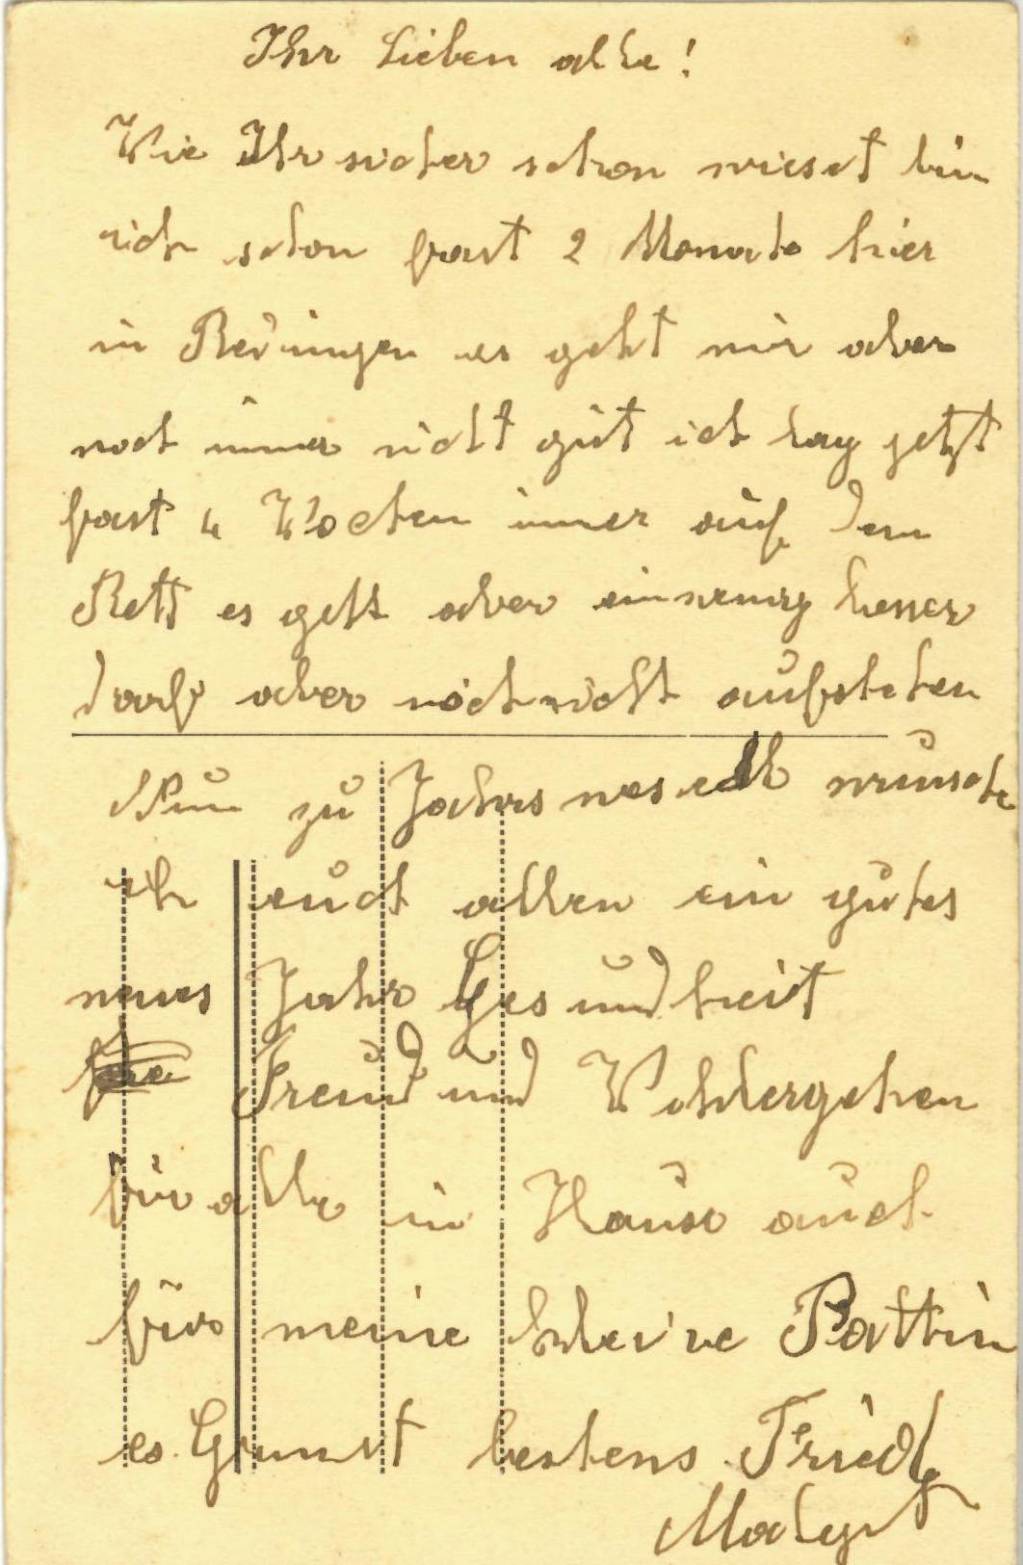 Ihr Lieben alle!
Wie Ihr sicher schon wiest bin
ich schon fast 2 Monate hier
in es geht mir aber
noch immer nicht gut ich lag jetzt
fast 4 Wochen immer auf dem
Bett es geht aber ein wenig besser
darf aber noch nicht aufstehen
Nun zu Jahres wünsche
ich euch allen ein gutes
neues Jahr Gesundheit
Freud und Wohlergehen
für alle in Hause auch
für meine kleine Pattin
es Grüsst bestens